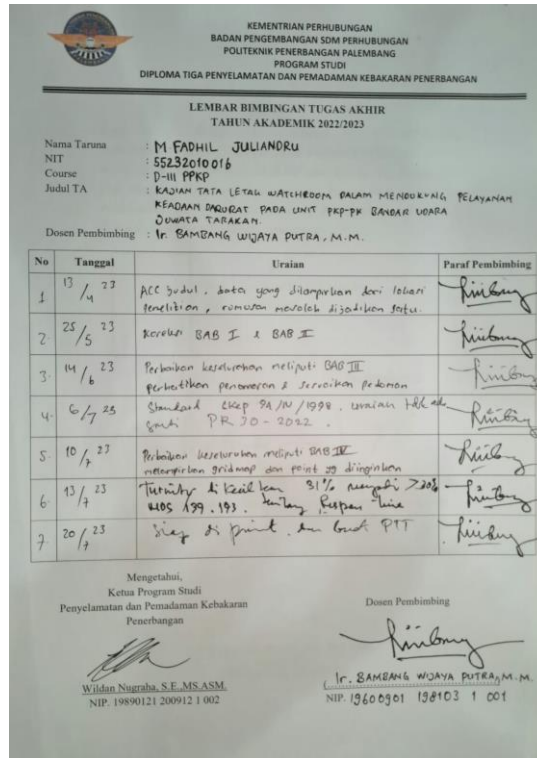 KEMENTRIAN PERHUBUNGAN
BADAN PENGEMBANGAN SDM PERHUBUNGAN
POLITEKNIK PENERBANGAN PALEMBANG
PROGRAM STUDI
DIPLOMA TIGA PENYELAMATAN DAN PEMADAMAN KEBAKARAN PENERBANGAN
LEMBAR BIMBINGAN TUGAS AKHIR
TAHUN AKADEMIK 2022/2023
Nama Taruna : M FADHIL JULIANDRU
NIT : 55232010016
Course : D-III PPKP
Judul TA : KAJIAN TATA LETAK WATCHROOM DALAM MENDUKUNG PELAYANAN
KEADAAN DARURAT PADA UNIT PKP-PK BANDAR UDARA
JUWATA TARAKAN.
Dosen Pembimbing : Ir. BAMBANG WIJAYA PUTRA, M.M.
No Tanggal Uraian Paraf Pembimbing
1 13/4 23 ACC Judul, data yang dilampirkan dari lokasi
penelitian, rumusan masalah dijadikan satu.
2. 25/5 23 Koreksi BAB I & BAB II
3. 14/6 23 Perbaikan keseluruhan meliputi BAB III
perhatikan penomoran & sesuaikan pedoman
4. 6/7 23 Standard SKEP 94/IV/1998, uraian
ganti PR 30-2022.
5. 10/7 23 Perbaikan keseluruhan meliputi BAB IV
melampirkan gridmap dan point yg diinginkan
6. 13/7 23 Turnitin di kecilkan 31% menjadi 20%
139. Respon time
7. 20/7 23 Siap di print, dan buat PPT
Mengetahui,
Ketua Program Studi
Penyelamatan dan Pemadaman Kebakaran
Penerbangan
Dosen Pembimbing
Wildan Nugraha, S.E.,MS.ASM.
NIP. 19890121 200912 1 002
Ir. BAMBANG WIJAYA PUTRA, M.M.
NIP. 19600901 198103 1 001